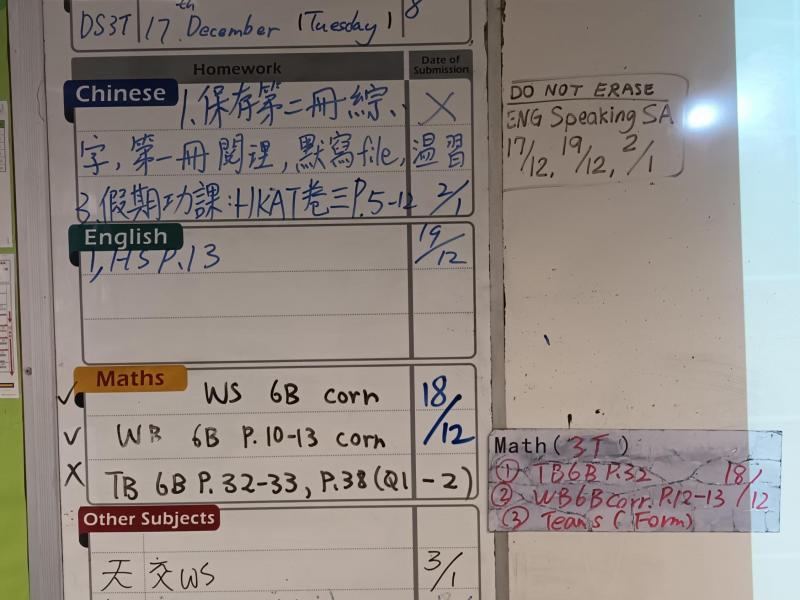 DS3T 17th December (Tuesday) 8
Homework Date of Submission
Chinese 1.保存第二冊綜、 X
字，第一冊閱理，默寫file，溫習
3.假期功課：HKAT卷三P.5-12 2/1
English 19/12
1, HS P.13
Maths WS 6B corn 18/12
✓ WB 6B P.10-13 corn
X TB 6B P.32-33, P.38(Q1-2)
Other Subjects
天 交WS 3/1
DO NOT ERASE
ENG Speaking SA
17/12, 19/12, 2/1
Math(3T)
① TB6B P.32 18/12
② WB6B corr. P.12-13
③ Teams (Form)